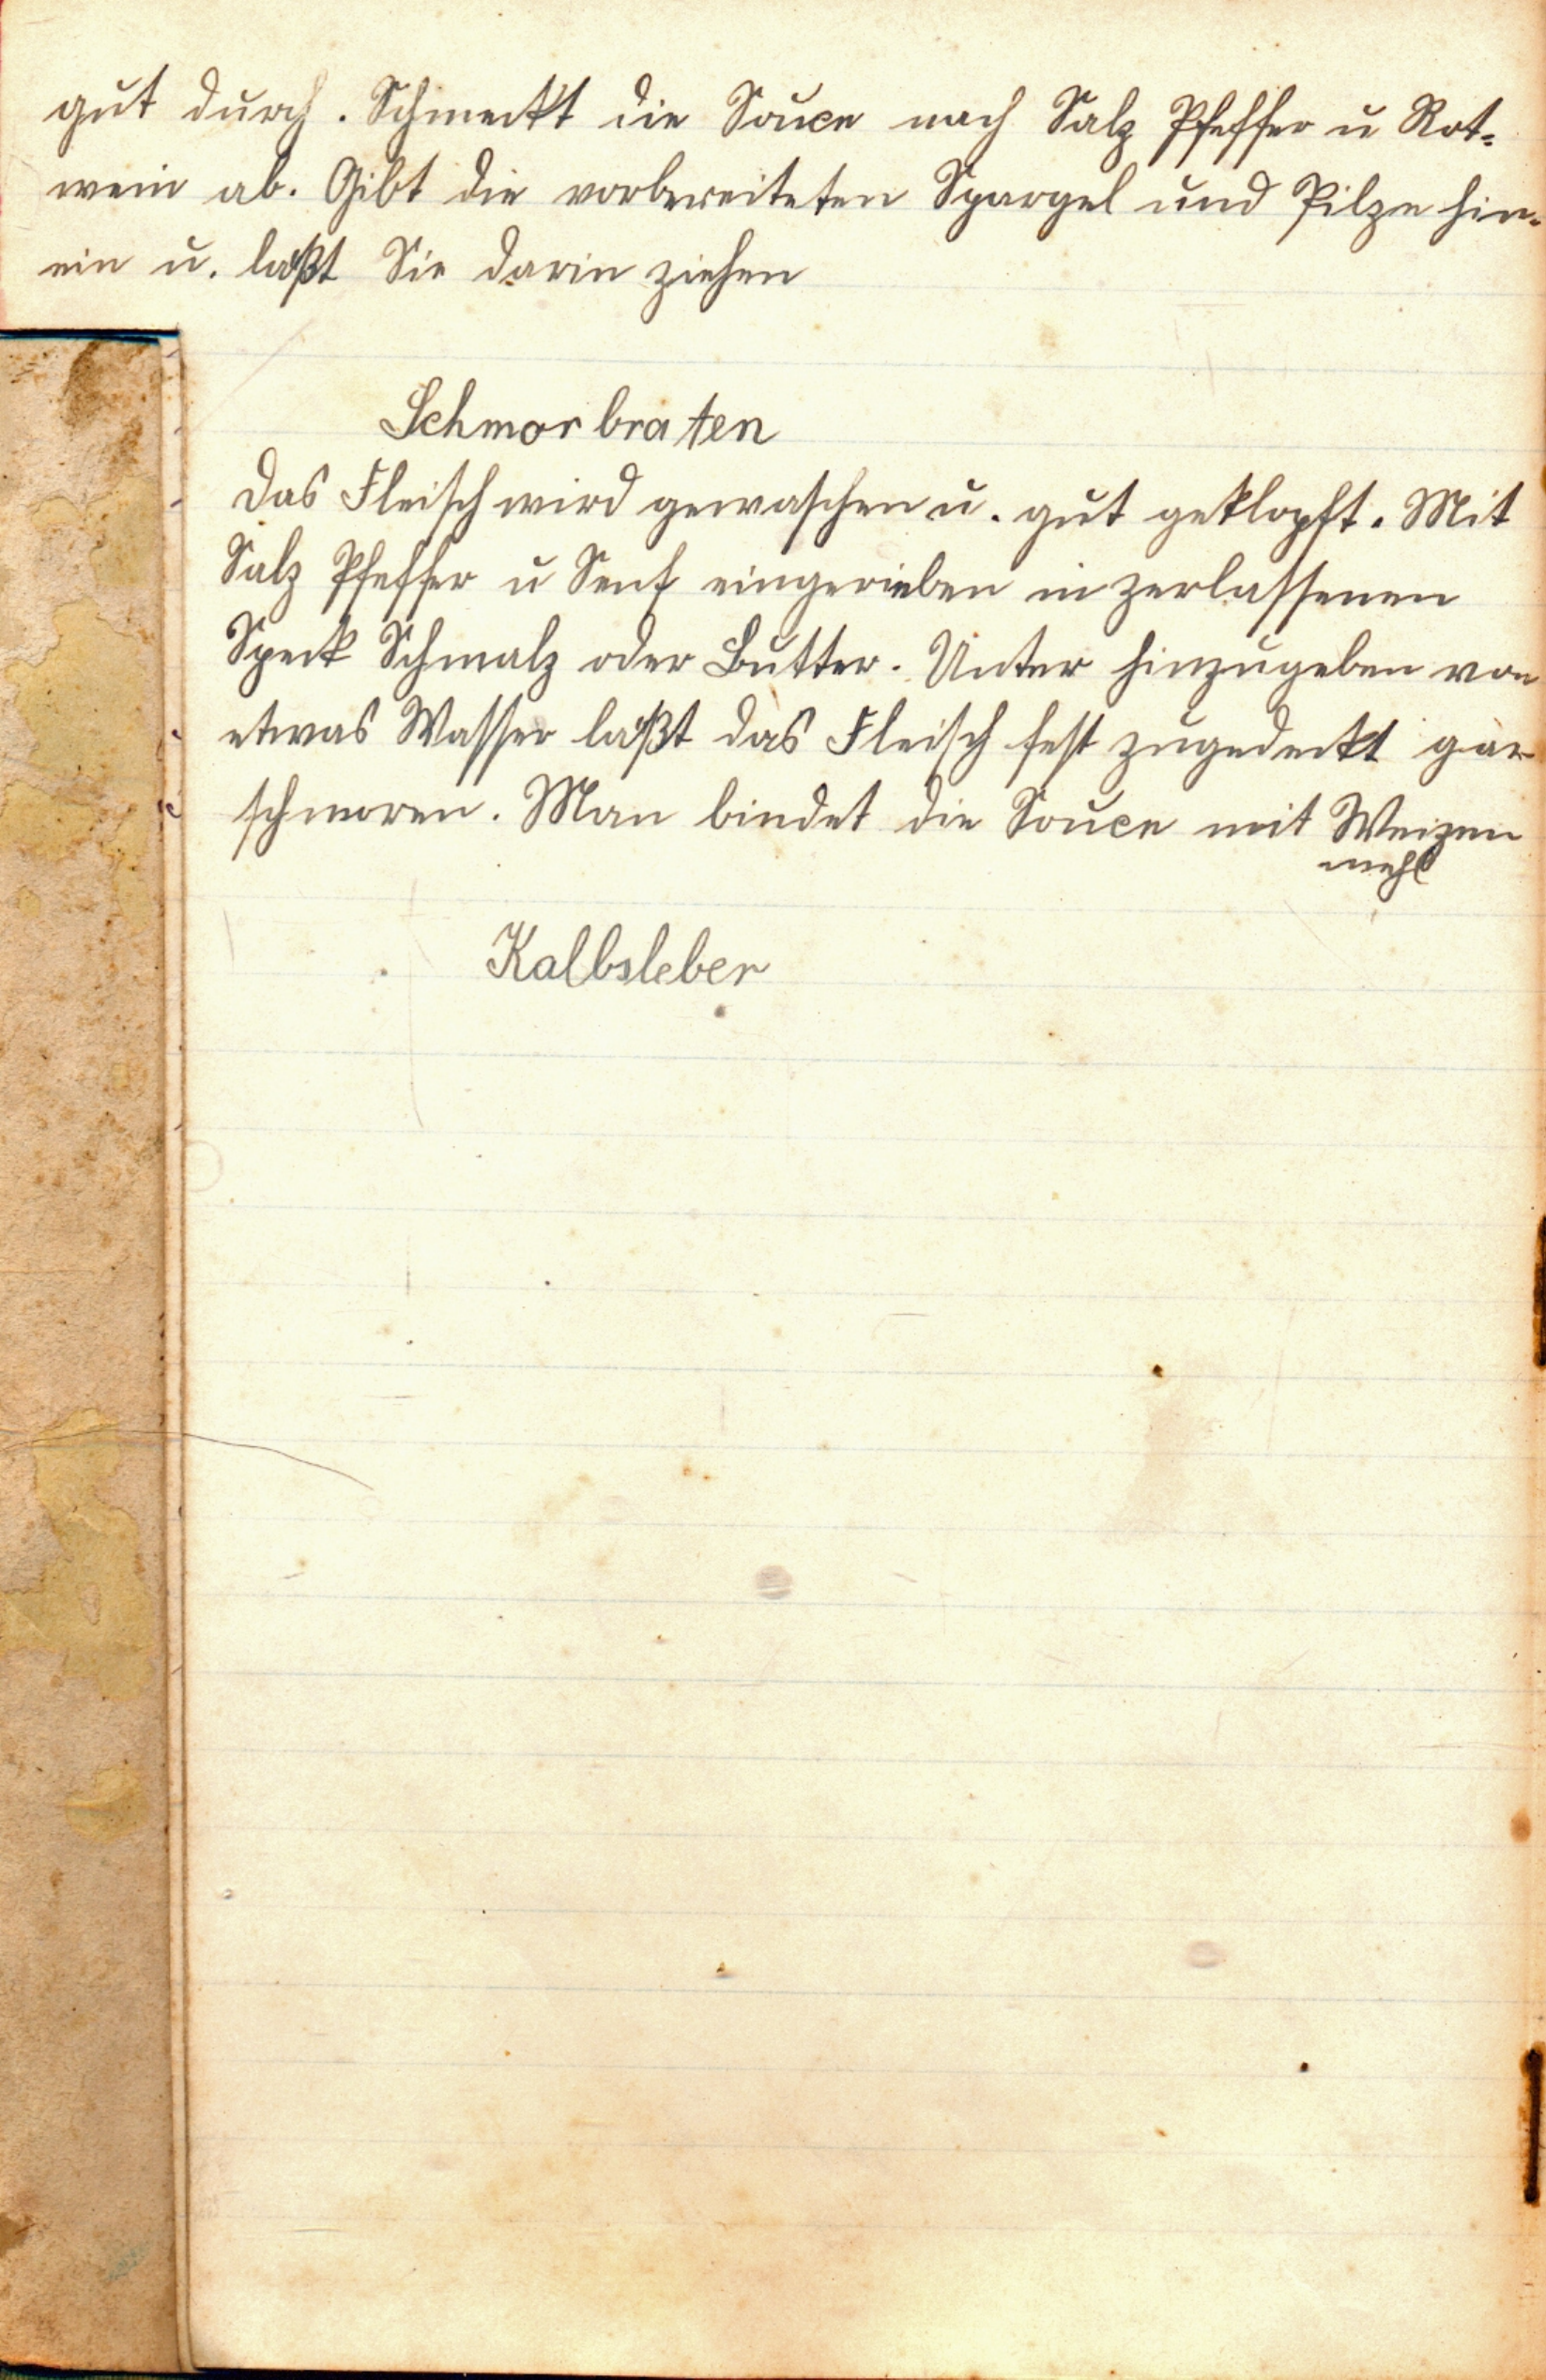 gut durch. Schmeckt die Souce nach Salz Pfeffer u Rot=
wein ab. Gibt die vorbereiteten Spargel und Pilze hin-
ein u. läßt Sie darin ziehen
Schmorbraten
Das Fleisch wird gewaschen u. gut geklopft. Mit
Salz Pfeffer u Senf eingerieben in zerlassenen
Speck Schmalz oder Butter. Unter hinzugeben von
etwas Wasser läßt das Fleisch fest zugedeckt gar
schmoren. Man bindet die Souce mit Weizen
mehl
Kalbsleber